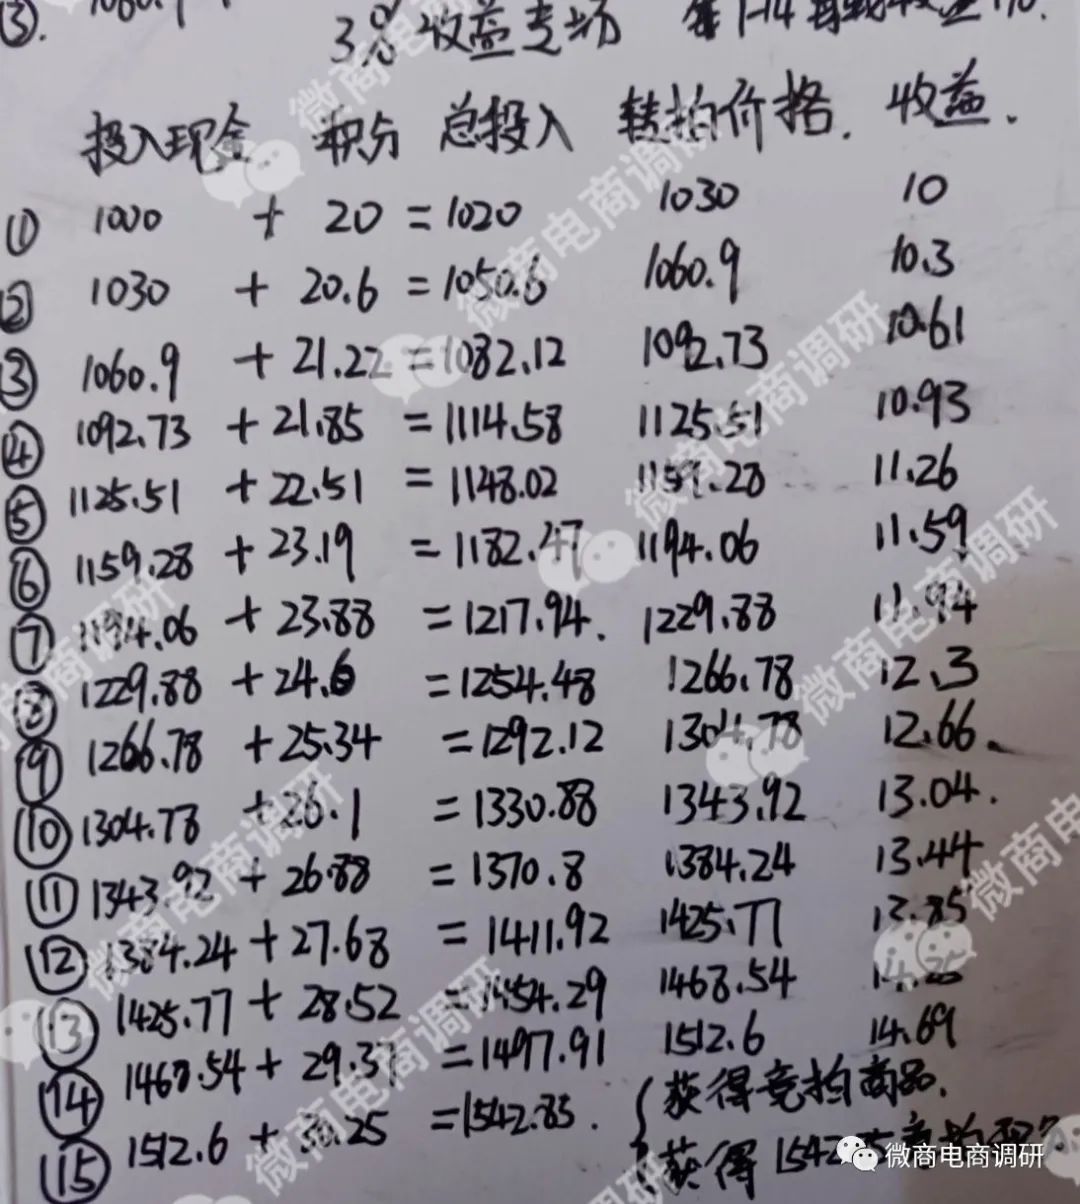 3% 收益专场
投入现金 积分 总投入 转拍价格. 收益.
① 1000 + 20 = 1020 1030 10
② 1030 + 20.6 = 1050.6 1060.9 10.3
③ 1060.9 + 21.22 = 1082.12 1092.73 10.61
④ 1092.73 + 21.85 = 1114.58 1125.51 10.93
⑤ 1125.51 + 22.51 = 1148.02 1159.28 11.26
⑥ 1159.28 + 23.19 = 1182.47 1194.06 11.59
⑦ 1194.06 + 23.88 = 1217.94. 1229.88 11.94
⑧ 1229.88 + 24.6 = 1254.48 1266.78 12.3
⑨ 1266.78 + 25.34 = 1292.12 1304.78 12.66.
⑩ 1304.78 + 26.1 = 1330.88 1343.92 13.04.
⑪ 1343.92 + 26.88 = 1370.8 1384.24 13.44
⑫ 1384.24 + 27.68 = 1411.92 1425.77 13.85
⑬ 1425.77 + 28.52 = 1454.29 1468.54
⑭ 1468.54 + 29.37 = 1497.91 1512.6 14.69
⑮ 1512.6 + 30.25 = 1542.85. 获得竞拍商品.
获得
微商电商调研